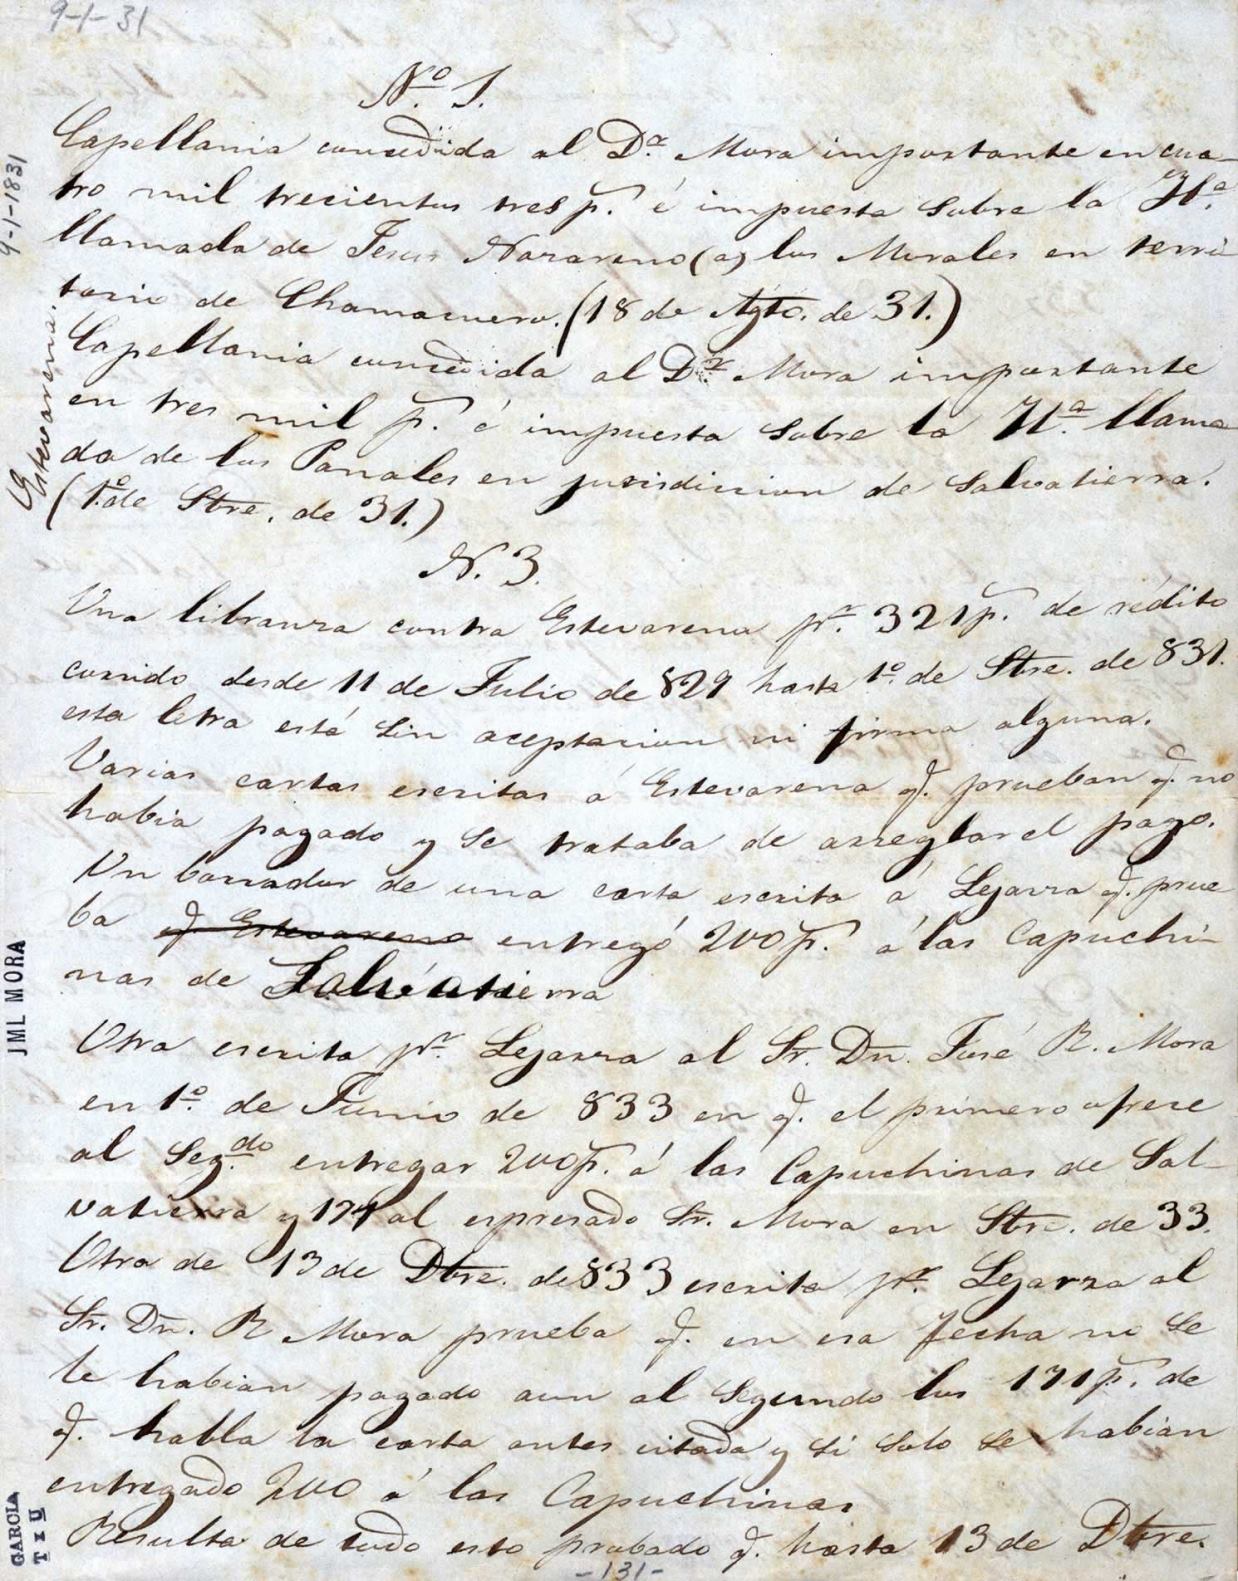 9-1-31
Nº. 1.
Capellania concedida al Dr. Mora importante en cua-
tro mil trecientos tres p.s é impuesta sobre la Ha.
llamada de Jesus Nazareno (a) los Morales en terri-
torio de Chamacuero. (18 de Agto. de 31.)
Capellania concedida al Dr. Mora importante
en tres mil p.s é impuesta sobre la Ha. llama
da de los Panales en jurisdiccion de Salvatierra.
(1º. de Stre. de 31.)
N. 3.
Una libranza contra Estevarena pr. 321 p.s de rédito
corrido desde 11 de Julio de 829 hasta 1º. de Stre. de 831.
esta letra está sin aceptacion ni firma alguna.
Varias cartas escritas á Estevarena q. prueban q. no
habia pagado y se trataba de arreglar el pago.
Un borrador de una carta escrita á Lejarza q. prue
ba q. Estevarena entregó 200 p.s á las Capuchi-
nas de Salvatierra
Otra escrita pr. Lejarza al Sr. Dn. José R. Mora
en 1º. de Junio de 833 en q. el primero ofrece
al Seg.do entregar 200 p.s á las Capuchinas de Sal-
vatierra y 171 al espresado Sr. Mora en Stre. de 33.
Otra de 13 de Dbre. de 833 escrita pr. Lejarza al
Sr. Dn. R Mora prueba q. en esa fecha no se
le habian pagado aun al segundo los 171 p.s de
q. habla la carta antes citada y si solo se habian
entregado 200 á las Capuchinas
Resulta de todo esto probado q. hasta 13 de Dbre.
-131-
9-1-1831
Estevarena.
JML MORA
GARCIA